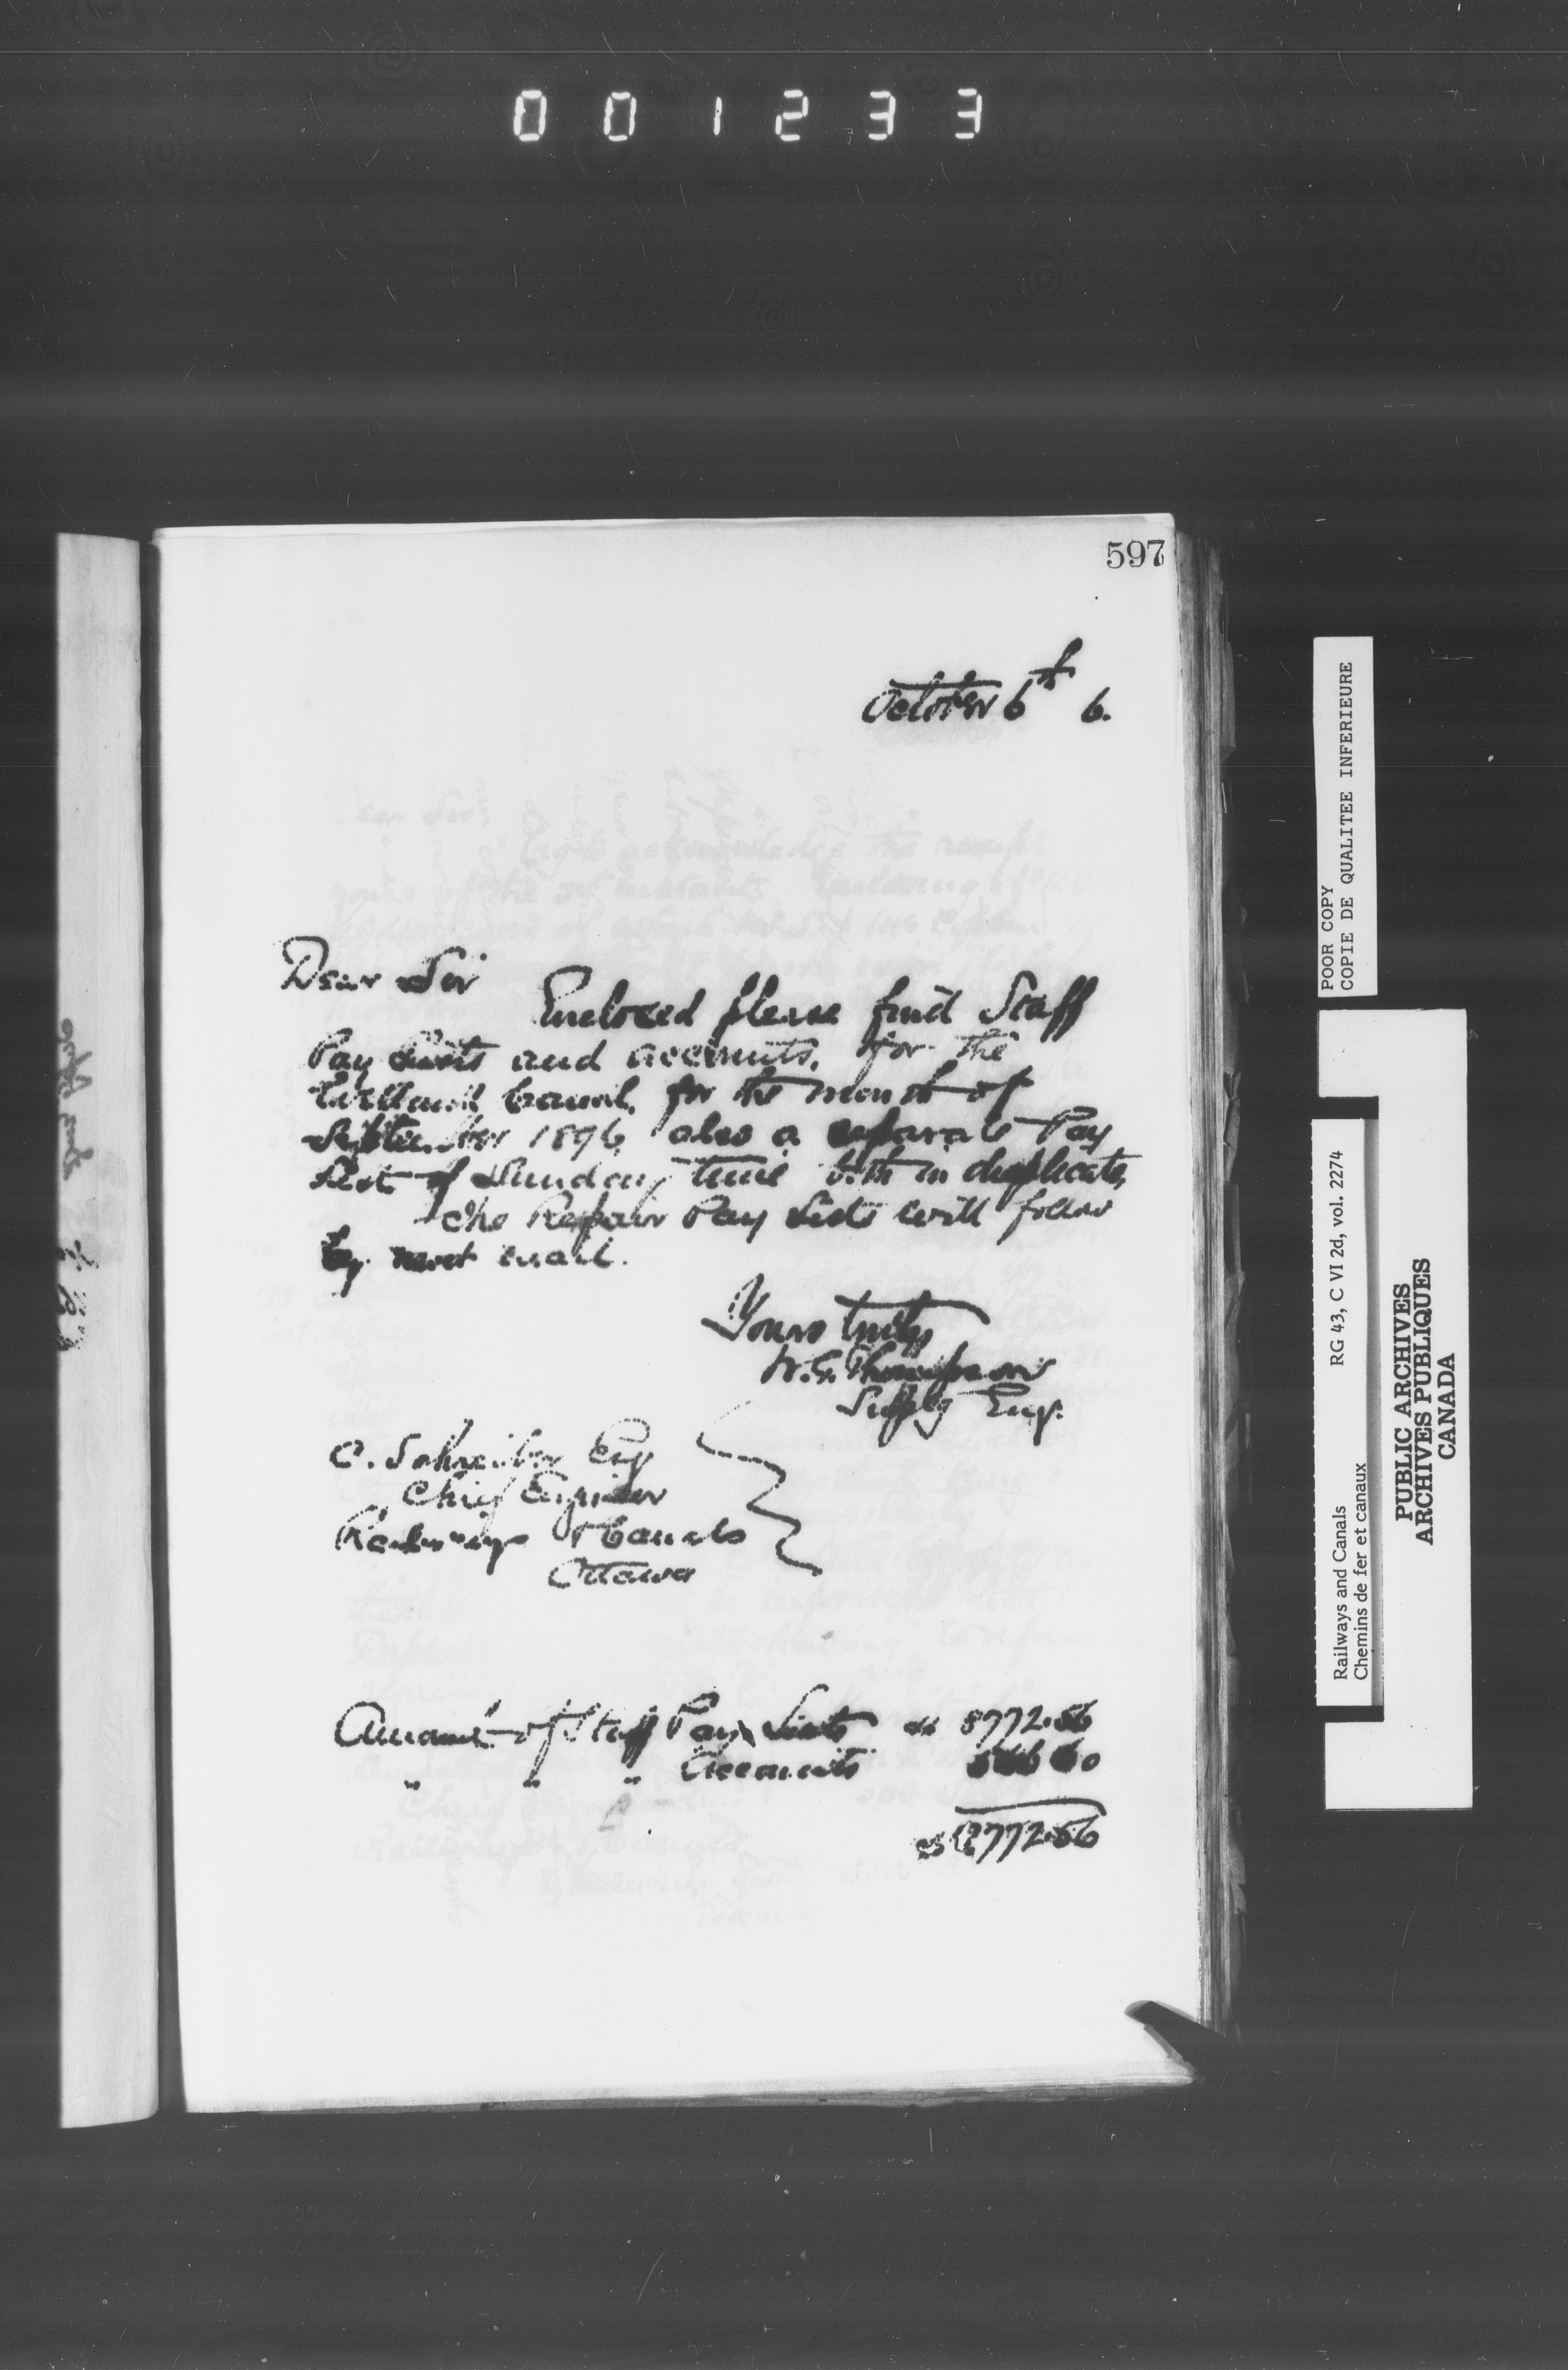 001233
597
October 6th 6.
Dear Sir
Enclosed please find Staff
Pay Lists and accounts, for the
Welland Canal, for the month of
September 1896 also a separate Pay
List of Sunday time both in duplicate,
The Repair Pay Lists will follow
by next mail.
Yours truly
W.G. Thompson
Suptg Eng.
C. Schreiber Esq
Chief Engineer
Railways & Canals
Ottawa
Amount of Staff Pay Lists $ 8772.56
" " " Accounts
772.56
POOR COPY
COPIE DE QUALITEE INFERIEURE
RG 43, C VI 2d, vol. 2274
Railways and Canals
Chemins de fer et canaux
PUBLIC ARCHIVES
ARCHIVES PUBLIQUES
CANADA